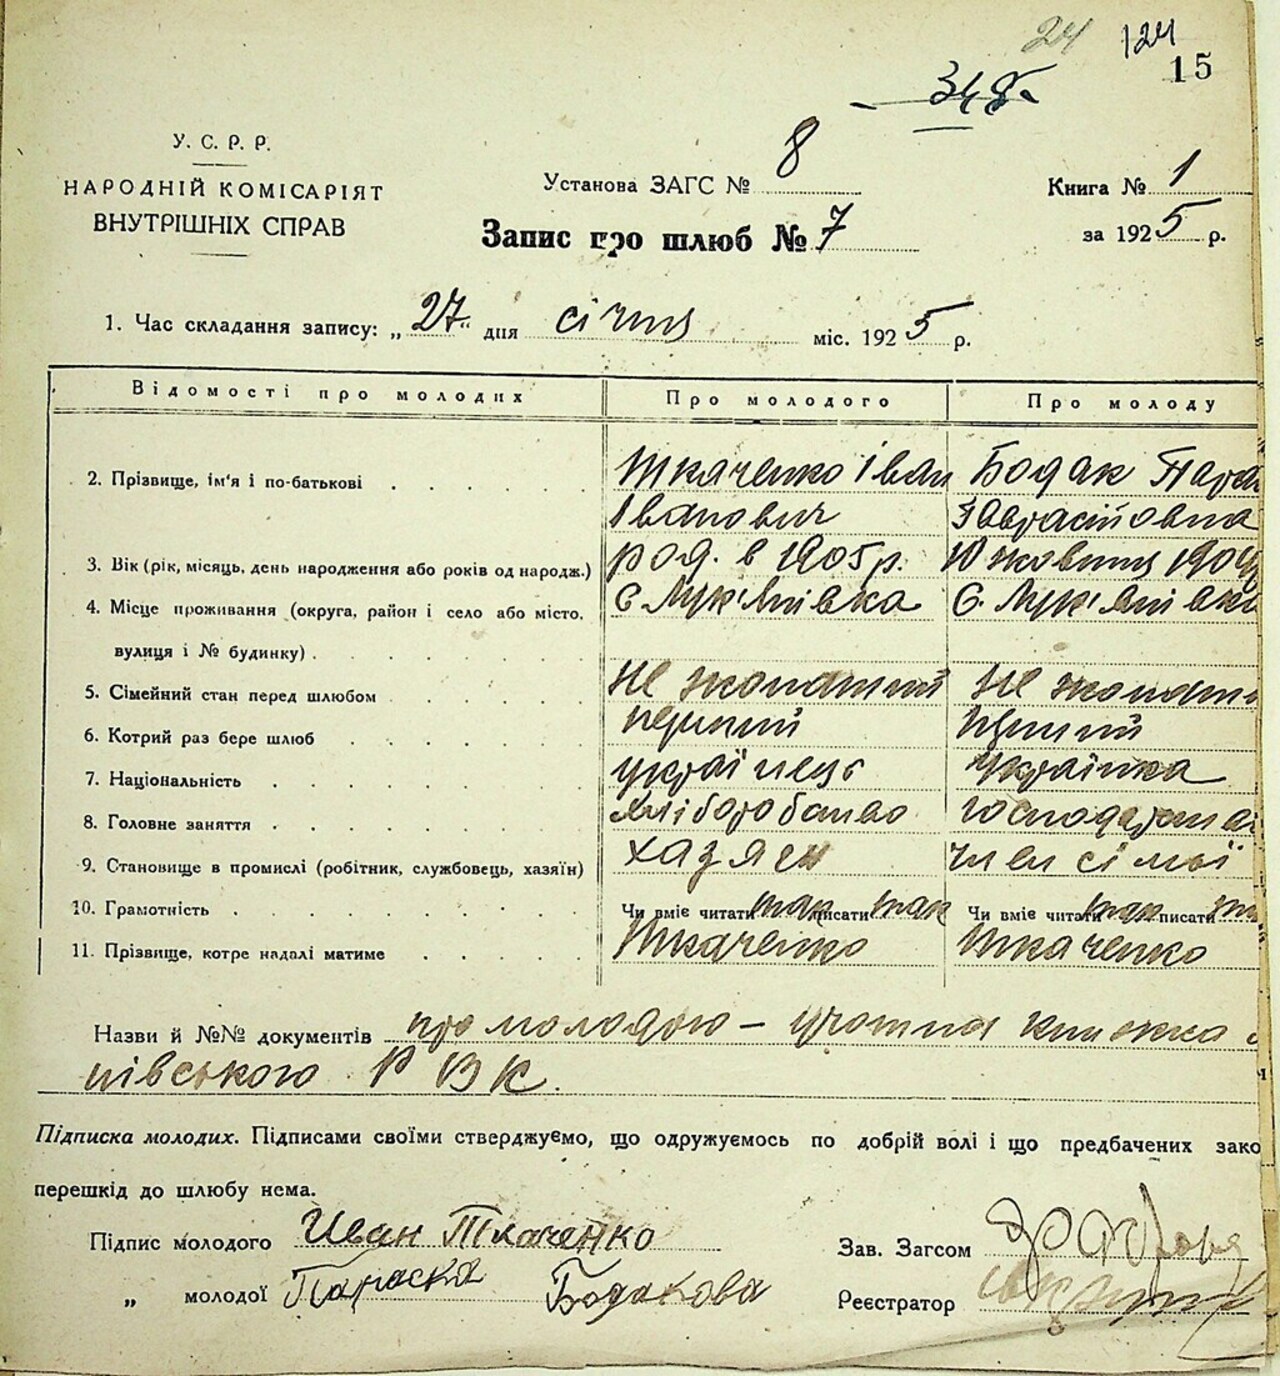 24 124
15
348.
У. С. Р. Р.
НАРОДНІЙ КОМІСАРІЯТ
ВНУТРІШНІХ СПРАВ
Установа ЗАГС № 8
Книга № 1
Запис про шлюб № 7
за 1925 р.
1. Час складання запису: „27" дня січня міс. 1925 р.
Відомості про молодих Про молодого Про молоду
2. Прізвище, ім'я і по-батькові Ткаченко Іван Бодак Пара
Іванович
3. Вік (рік, місяць, день народження або років од народж.) род. в 1905 р. 10 жовтня 1904
4. Місце проживання (округа, район і село або місто, с Лук'янівка с. Лук'янівка
вулиця і № будинку)
5. Сімейний стан перед шлюбом Не жонатий Не жонат
6. Котрий раз бере шлюб перший перший
7. Національність українець українка
8. Головне заняття хліборобство господарств
9. Становище в промислі (робітник, службовець, хазяїн) хазяєн член сім'ї
10. Грамотність Чи вміє читати так писати так Чи вміє читати так писати так
11. Прізвище, котре надалі матиме Ткаченко Ткаченко
Назви й №№ документів про молодого – учотна книжка
півського Р В К.
Підписка молодих. Підписами своїми стверджуємо, що одружуємось по добрій волі і що предбачених зако
перешкід до шлюбу нема.
Підпис молодого Иван Ткаченко
Зав. Загсом
„ молодої Параска Бодакова
Реєстратор